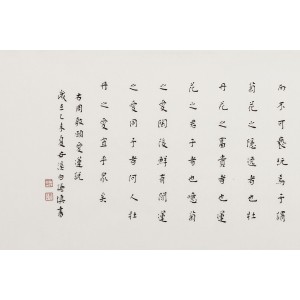 而不可褻玩焉予謂
菊花之隱逸者也牡
丹花之富貴者也蓮
花之君子者也噫菊
之愛陶後鮮有聞蓮
之愛同予者何人牡
丹之愛宜乎眾矣
右周敦頤愛蓮說
歲在乙未夏